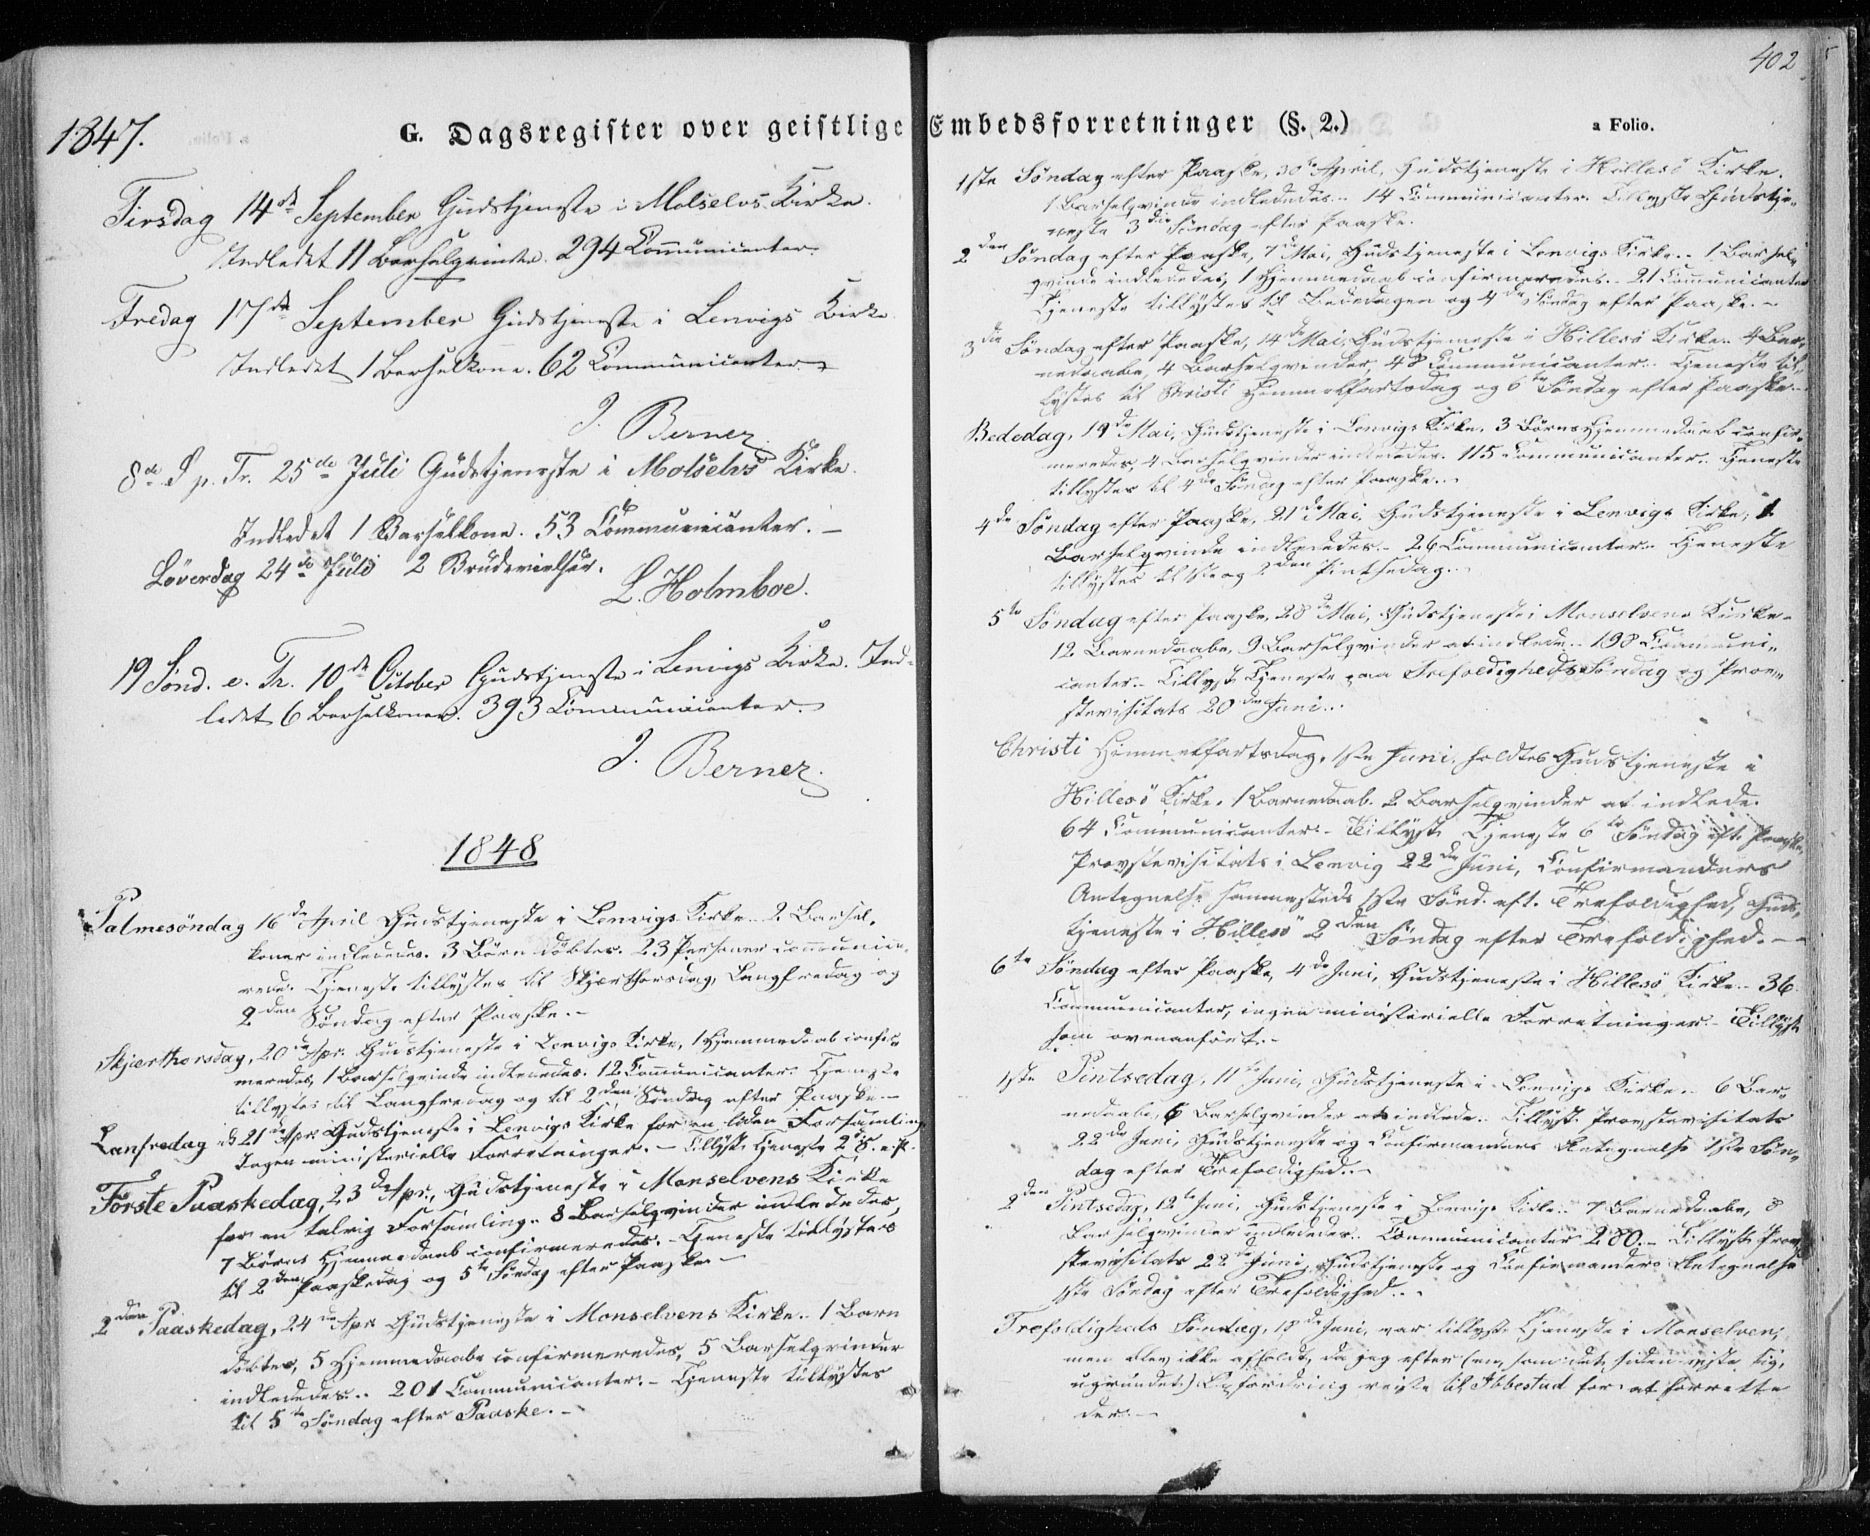 1847.
G. Dagsregister over geistlige Embedsforretninger (§. 2.)
a Folio.
402
Tirsdag 14de September Gudstjeneste i Molselvs Kirke.
Indledet 11 Barselqvinder. 294 Communicanter.
Fredag 17de September Gudstjeneste i Lenvigs Kirke
Indledet 1 Barselkone. 62 Communicanter.
J. Berner
8de S. p. Tr. 25de Juli Gudstjeneste i Molselvs Kirke.
Indledet 1 Barselkone. 53 Communicanter. –
Løverdag 24de Juli 2 Brudevielser.
L. Holmboe.
19 Sønd. e. Tr. 10de October Gudstjeneste i Lenvigs Kirke. Ind-
ledet 6 Barselkoner. 393 Communicanter.
J. Berner.
1848
Palmesöndag 16de April Gudstjeneste i Lenvigs Kirke. 2 Barsel-
koner indlededes. 3 Børn döbtes. 23 Personer communice-
rede. Tjeneste tillystes til Skjærthorsdag, Langfredag og
2den Søndag efter Paaske. –
Skjerthorsdag, 20de Apr. Gudstjeneste i Lenvigs Kirke, 1 Hjemmedaab confir-
meredes, 1 Barselqvinde indlededes. 12 Communicanter. Tjeneste
tillystes til Langfredag og til 2den Søndag efter Paaske. –
Lanfredag d. 21de Apr. Gudstjeneste i Lenvigs Kirke for en liden Forsamling
Ingen ministerielle Forretninger. – Tillyst Tjeneste 2 S. e. P.
Förste Paaskedag, 23de Apr., Gudstjeneste i Monselvens Kirke
for en talrig Forsamling. 8 Barselqvinder indlededes,
7 Börns Hjemmedaab confirmeredes. – Tjeneste tillystes
til 2den Paaskedag og 5te Søndag efter Paaske. –
2den Paaskedag, 24de Apr. Gudstjeneste i Monselvens Kirke. 1 Barn
döbtes, 5 Hjemmedaabe confirmeredes, 5 Barselqvinder
indlededes. 201 Communicanter. – Tjeneste tillystes
til 5te Søndag efter Paaske. –
1ste Søndag efter Paaske, 30te April, Gudstjeneste i Hillesö Kirke.
1 Barselqvinde indlededes. 14 Communicanter. Tillyste Gudstje-
neste 3die Søndag efter Paaske.
2den Søndag efter Paaske, 7de Mai, Gudstjeneste i Lenvigs Kirke. 1 Barsel-
qvinde indlededes, 1 Hjemmedaab confirmeredes. 21 Communicanter
Tjeneste tillystes til Bededagen og 4de Søndag efter Paaske. –
3die Søndag efter Paaske, 14de Mai, Gudstjeneste i Hillesö Kirke. 4 Bar-
nedaabe, 4 Barselqvinder, 48 Communicanter. Tjeneste til-
lystes til Christi Himmelfartsdag og 6te Søndag efter Paaske. –
Bededag, 19de Mai, Gudstjeneste i Lenvigs Kirke. 3 Børns Hjemmedaab confir-
meredes, 4 Barselqvinder indlededes. 115 Communicanter. Tjeneste
tillystes til 4de Søndag efter Paaske.
4de Søndag efter Paaske, 21de Mai, Gudstjeneste i Lenvigs Kirke, 1
Barselqvinde indlededes. 26 Communicanter. Tjeneste
tillystes til 1ste og 2den Pintsedag.
5te Søndag efter Paaske, 28de Mai, Gudstjeneste i Monselvens Kirke –
12 Barnedaabe, 9 Barselqvinder at indlede. 198 Communi-
canter. Tillyst Tjeneste paa Trefoldigheds Søndag og Prov-
stevisitats 20de Juni.
Christi Himmelfartsdag, 1ste Juni, holdtes Gudstjeneste i
Hillesö Kirke. 1 Barnedaab. 2 Barselqvinder at indlede.
64 Communicanter. – Tillyst Tjeneste 6te Søndag eft. Paaske,
Provstevisitats i Lenvig 22de Juni, Confirmanders
Antegnelse sammesteds 1ste Sönd. eft. Trefoldighed, Guds-
tjeneste i Hillesö 2den Søndag efter Trefoldighed. –
6te Søndag efter Paaske, 4de Juni, Gudstjeneste i Hillesö Kirke. 36
Communicanter, ingen ministerielle Forretninger. – Tillyst
som ovenanført. –
1ste Pintsedag, 11te Juni, Gudstjeneste i Lenvigs Kirke. 6 Bar-
nedaabe, 6 Barselqvinder at indlede. Tillyst Provstevisitats
22de Juni, Gudstjeneste og Confirmanders Antegnelse 1ste Søn-
dag efter Trefoldighed. –
2den Pintsedag, 12te Juni, Gudstjeneste i Lenvigs Kirke. 7 Barnedaabe, 8
Barselqvinder indlededes. Communicanter 280. – Tillyst Prov-
stevisitats 22de Juni, Gudstjeneste og Confirmanders Antegnelse
1ste Søndag efter Trefoldighed.
Trefoldigheds Søndag, 18de Juni, var tillyst Tjeneste i Monselven,
men blev ikke afholdt, da jeg efter (en, som det siden viste sig,
ugrundet) Befordring reiste til Ibbestad for at forrette
der. –